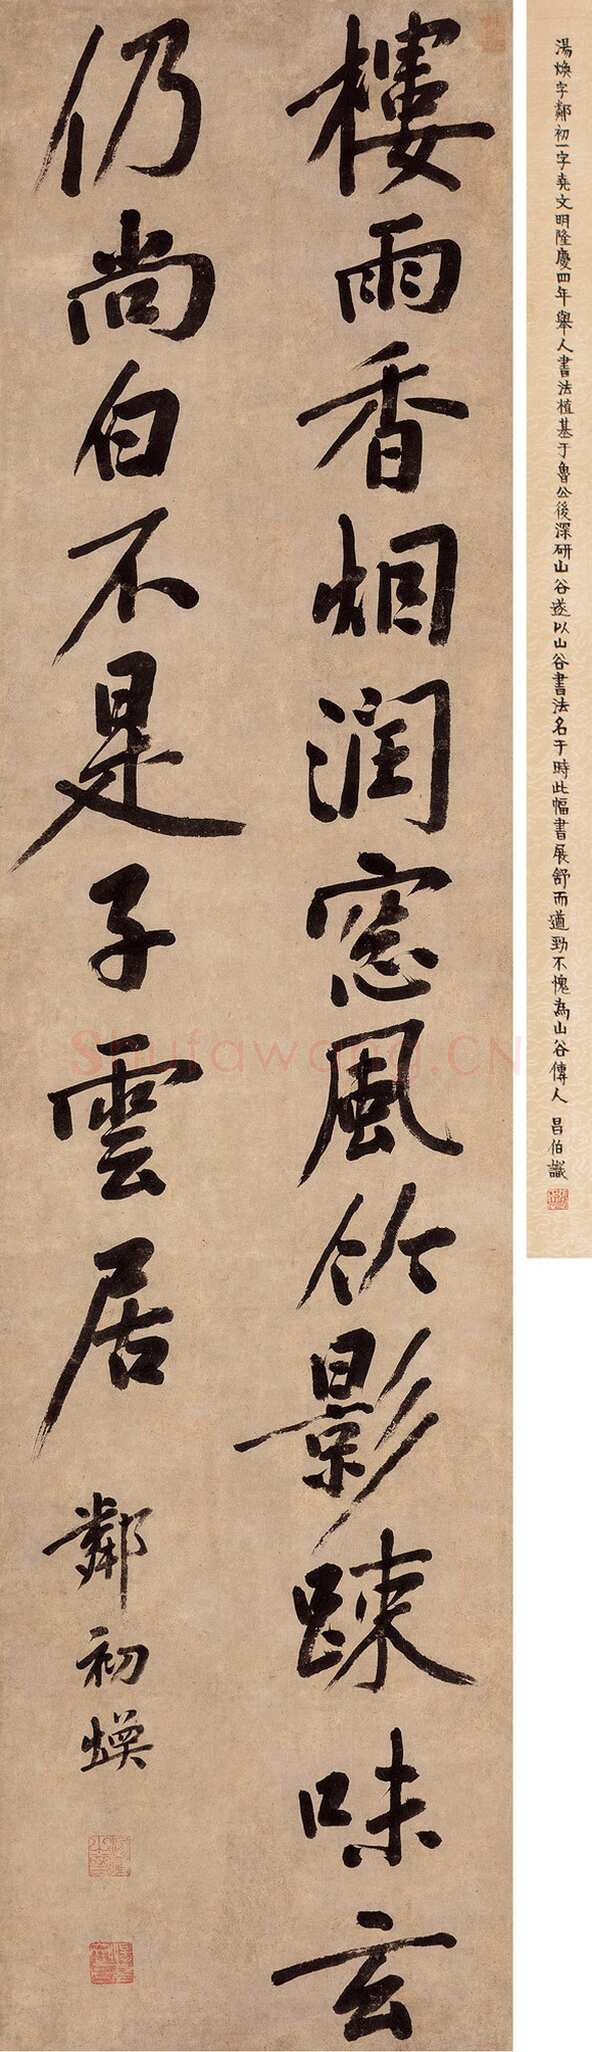 湯煥字鄰初一字堯文明隆慶四年舉人書法植基于魯公後深研山谷遂以山谷書法名于時此幅書展舒而遒勁不愧為山谷傳人 呂伯識
樓雨香烟潤窓風竹影踈味玄
仍尚白不是子雲居
鄰初煥
Shufawang.CN